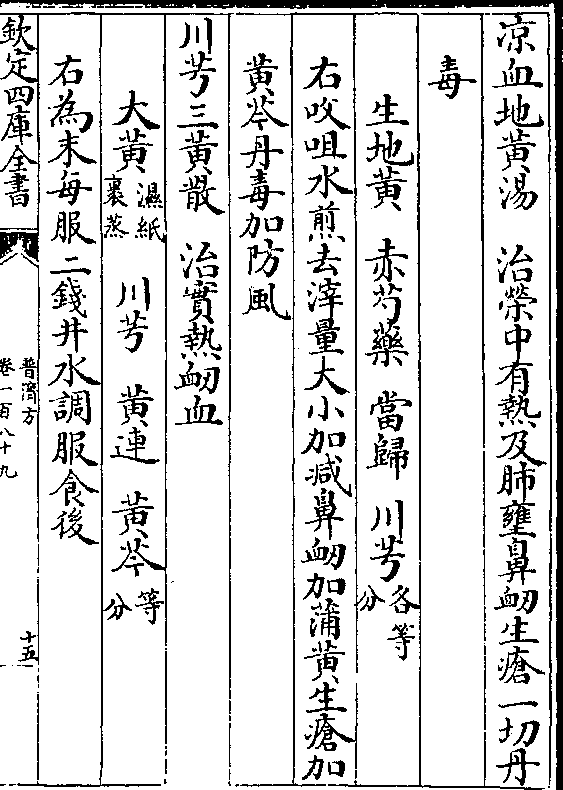 凉血地黄湯　治榮中有熱及肺壅鼻衂生瘡一切丹
毒
生地黄　赤芍藥　當歸　川芎各等分
右㕮咀水煎去滓量大小加减鼻衂加蒲黄生瘡加
黄芩丹毒加防風
川芎三黄散　治實熱衂血
大黄濕紙裹蒸　川芎　黄連　黄芩等分
右為末每服二錢井水調服食後
欽定四庫全書
普濟方
卷一百八十九
十五